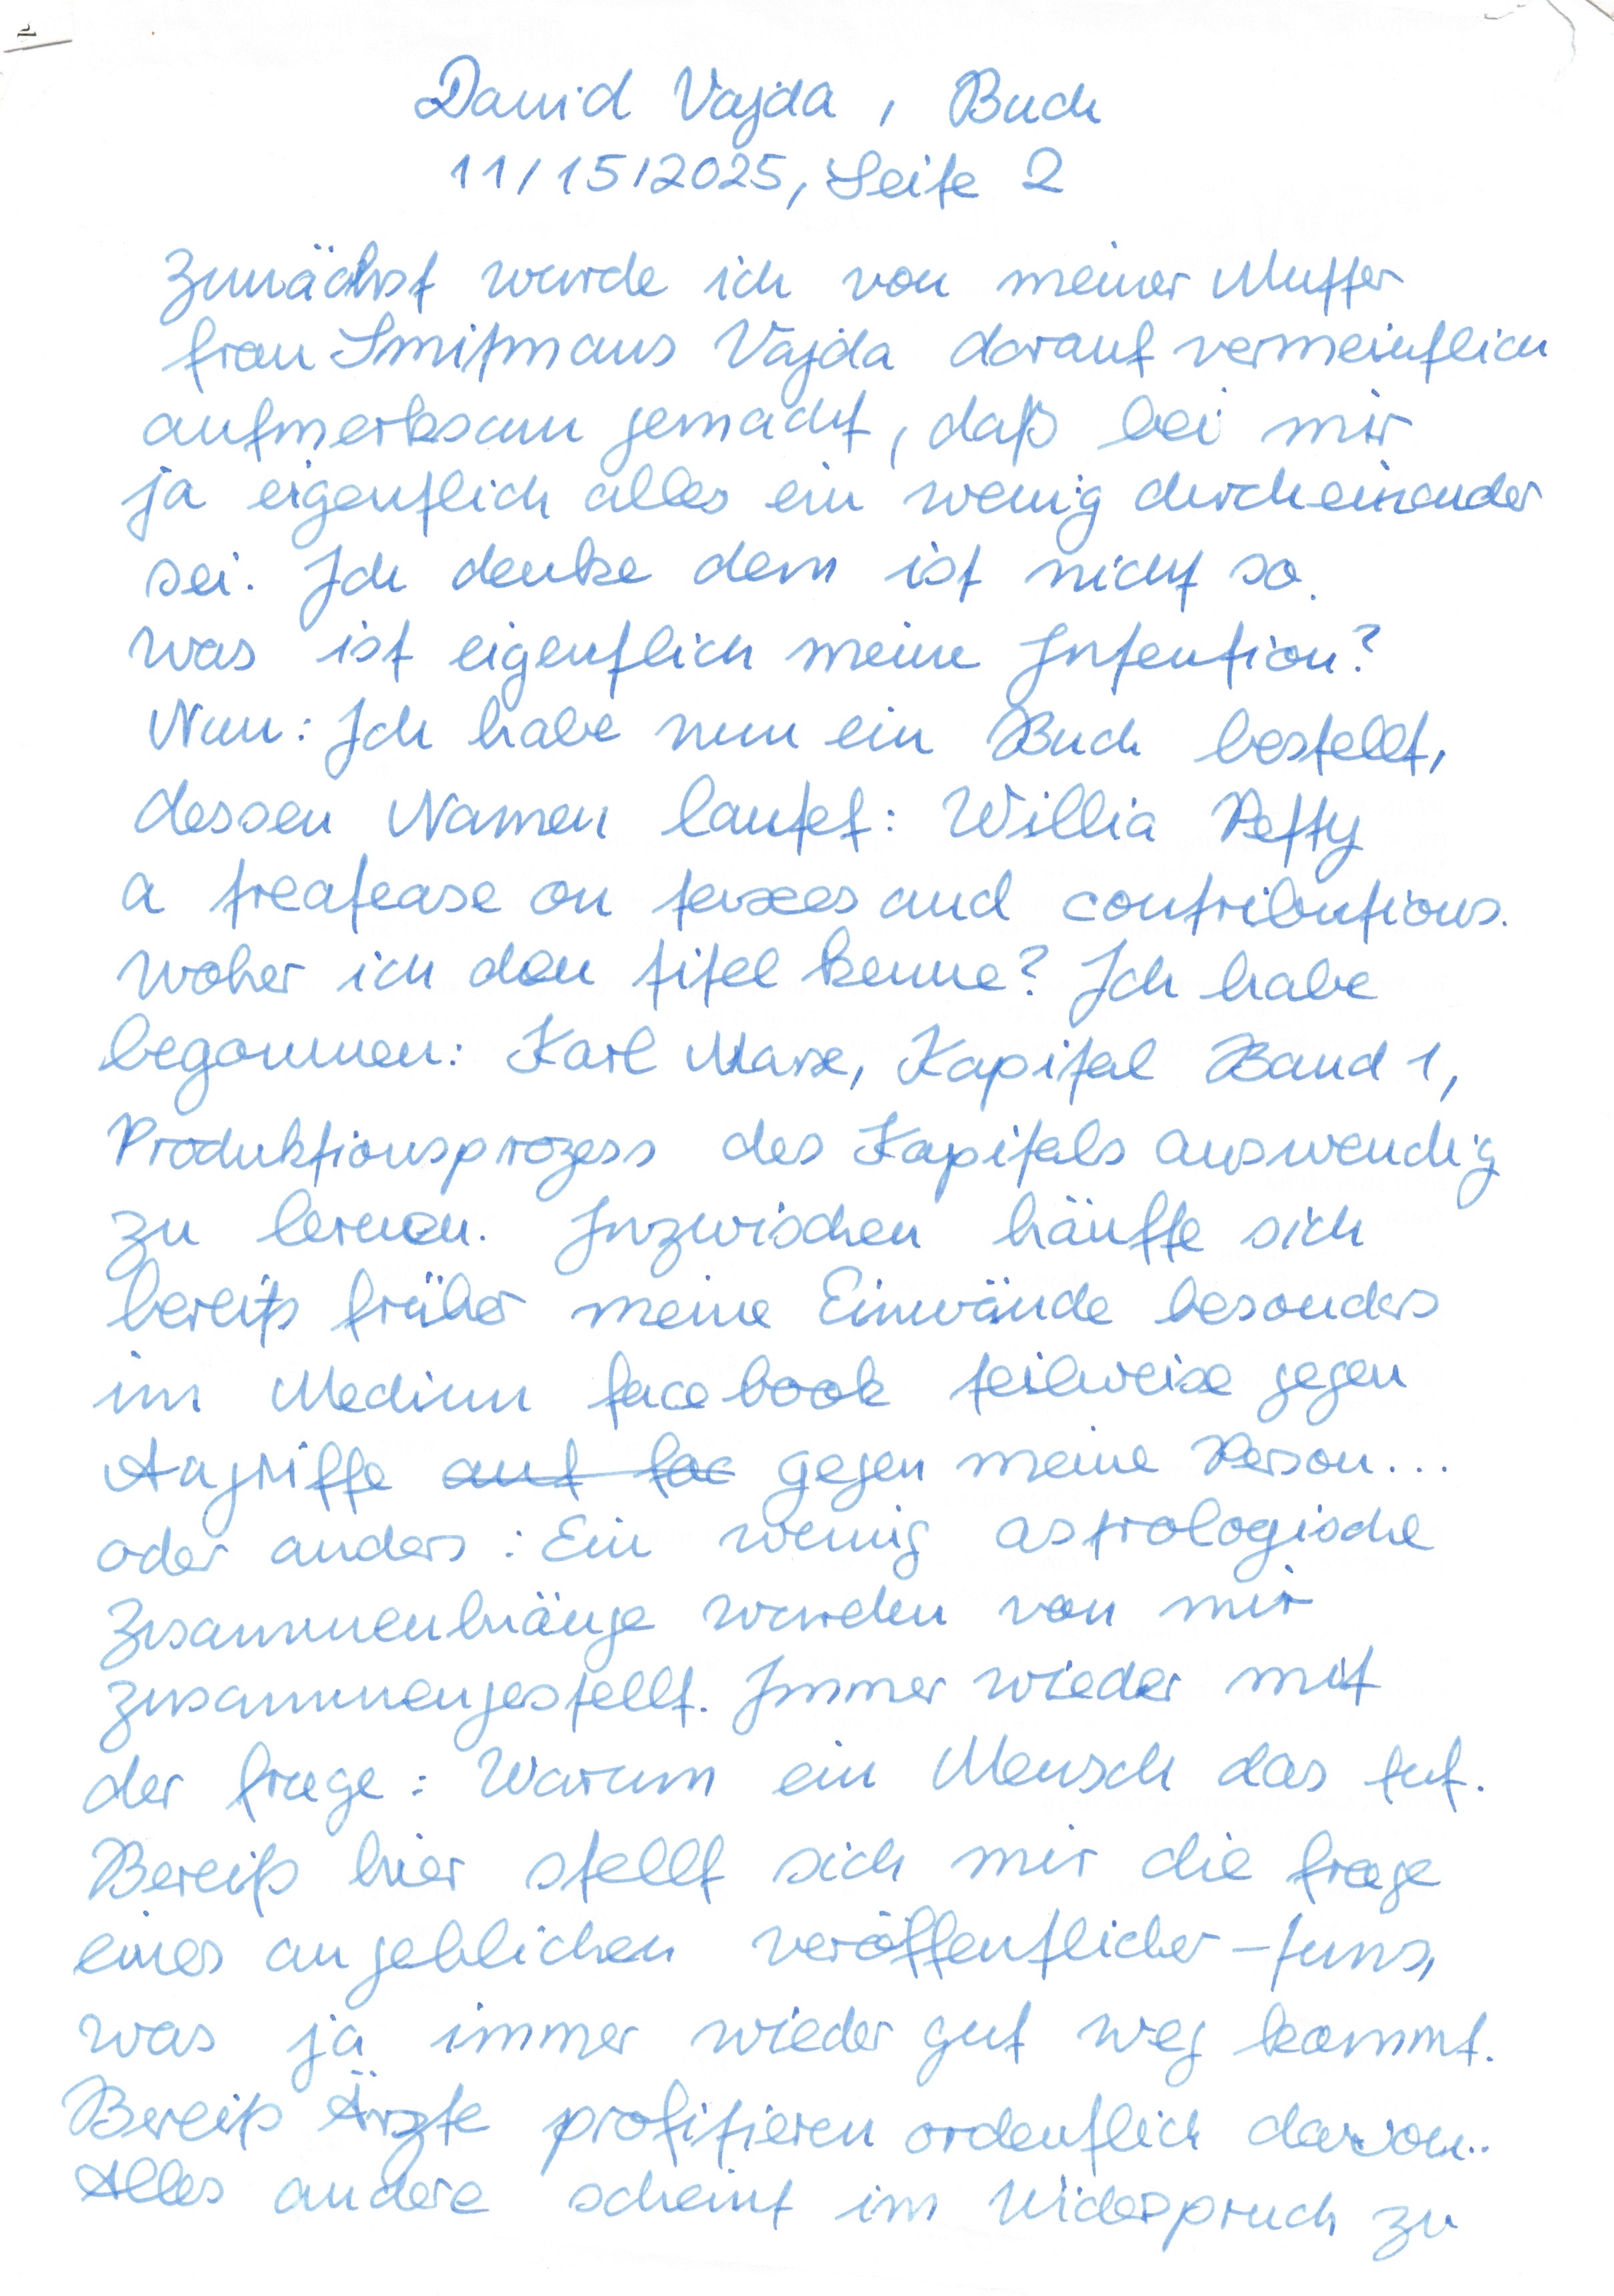 2
David Vajda, Buch
11/15/2025, Seite 2
Zunächst wurde ich von meiner Mutter
frau Smitmans Vajda darauf vermeintlich
aufmerksam gemacht, daß bei mir
ja eigentlich alles ein wenig durcheinander
sei. Ich denke dem ist nicht so.
Was ist eigentlich meine Intention?
Nun: Ich habe nun ein Buch bestellt,
dessen Namen lautet: Willia Petty
a treatease on taxes and contributions.
Woher ich den titel kenne? Ich habe
begonnen: Karl Marx, Kapital Band 1,
Produktionsprozess des Kapitals auswendig
zu lernen. Inzwischen häufte sich
bereits früher meine Einwände besonders
im Medium facebook teilweise gegen
Angriffe auf fac gegen meine Person...
oder anders: Ein wenig astrologische
Zusammenhänge wurden von mir
zusammengestellt. Immer wieder mit
der frage: Warum ein Mensch das tut.
Bereits hier stellt sich mir die frage
eines angeblichen veröffentlicher-tums,
was ja immer wieder gut weg kommt.
Bereits Ärzte profitieren ordentlich davon..
Alles andere scheint im Widerspruch zu